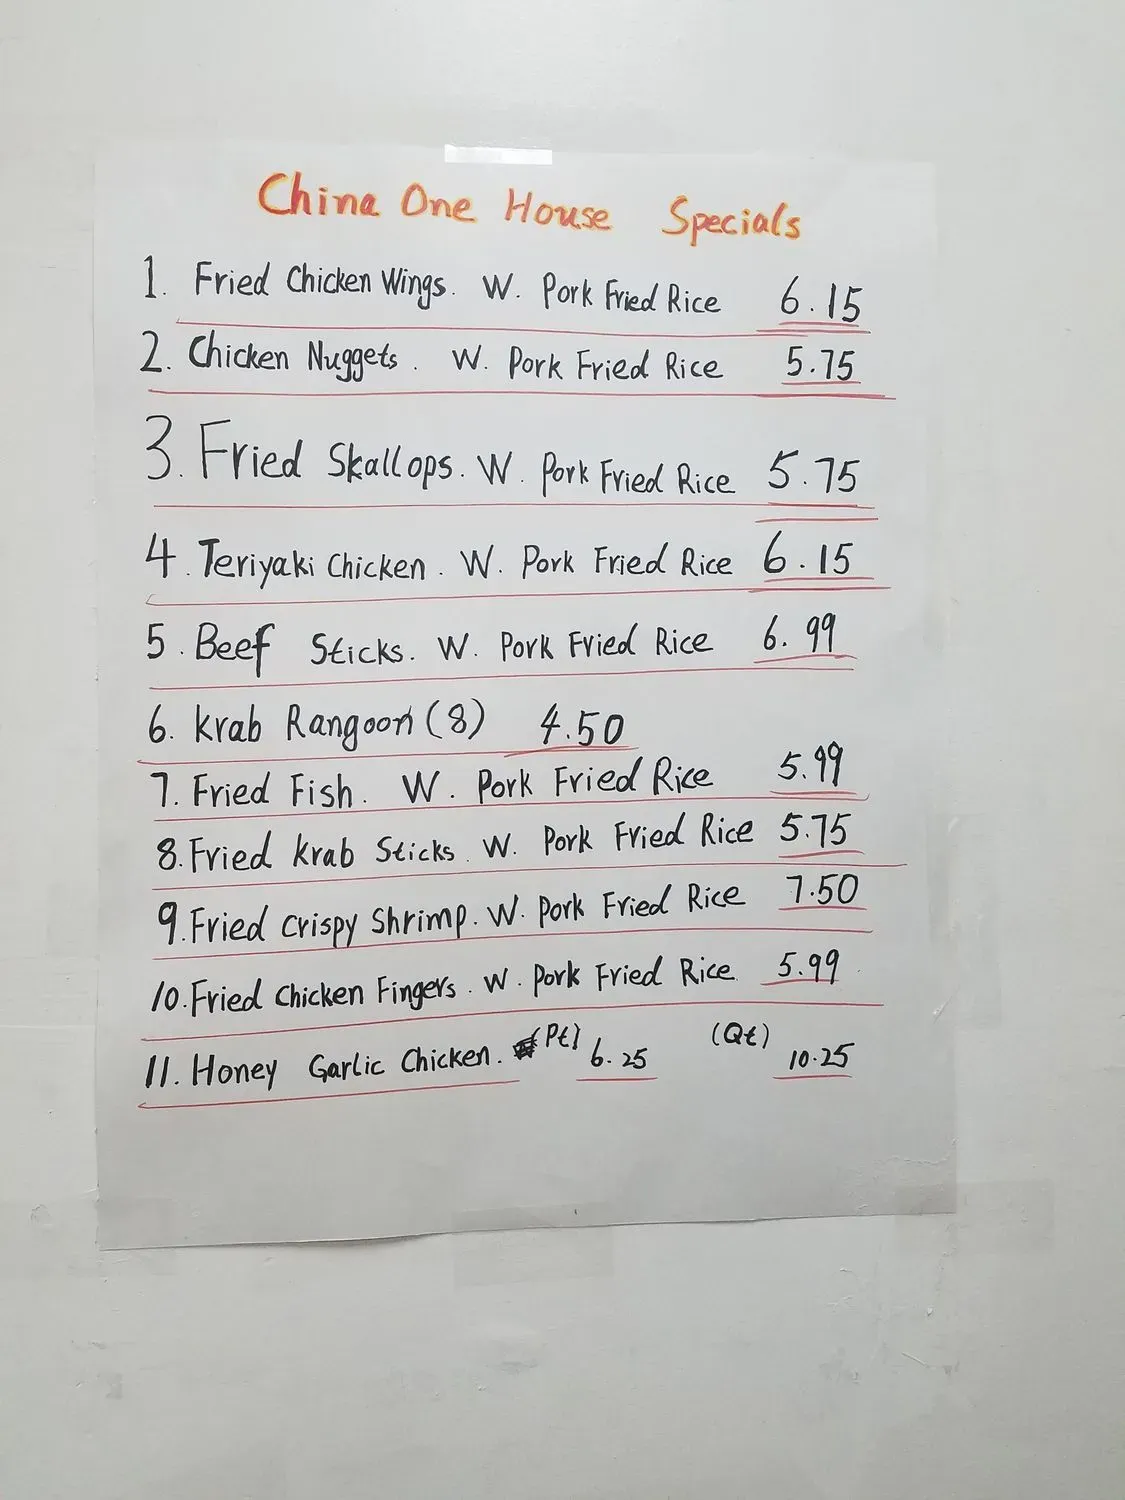 China One House Specials
1. Fried Chicken Wings. W. Pork Fried Rice 6.15
2. Chicken Nuggets. W. Pork Fried Rice 5.75
3. Fried Skallops. W. Pork Fried Rice 5.75
4. Teriyaki Chicken. W. Pork Fried Rice 6.15
5. Beef Sticks. W. Pork Fried Rice 6.99
6. Krab Rangoon (8) 4.50
7. Fried Fish. W. Pork Fried Rice 5.99
8. Fried Krab Sticks. W. Pork Fried Rice 5.75
9. Fried Crispy Shrimp. W. Pork Fried Rice 7.50
10. Fried Chicken Fingers. W. Pork Fried Rice 5.99
11. Honey Garlic Chicken. (Pt) 6.25 (Qt) 10.25